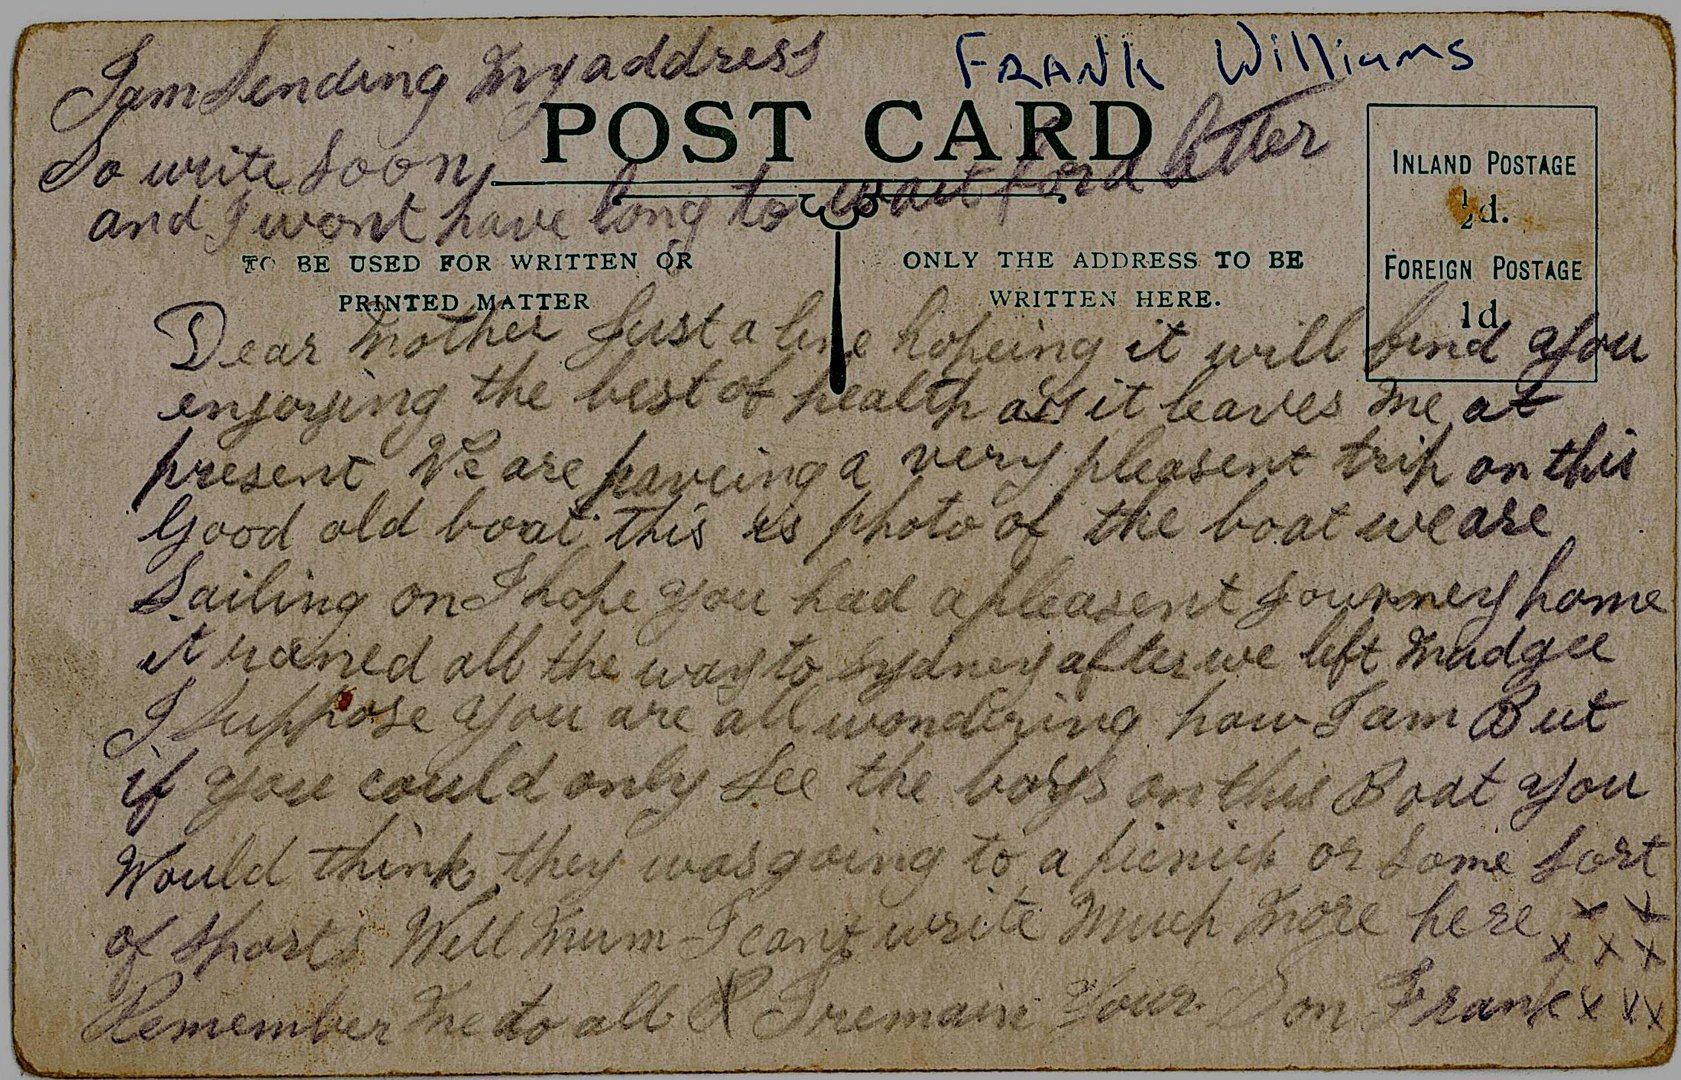 FRANK Williams
I am Sending my address
So write soon
and I wont have long to wait for a letter
POST CARD
TO BE USED FOR WRITTEN OR
PRINTED MATTER
ONLY THE ADDRESS TO BE
WRITTEN HERE.
INLAND POSTAGE
½d.
FOREIGN POSTAGE
1d.
Dear Mother Just a line hopeing it will find you
enjoying the best of health as it leaves me at
present We are haveing a very pleasent trip on this
Good old boat this is photo of the boat we are
Sailing on I hope you had a pleasent journey home
it rained all the way to Sydney after we left Mudgee
I Suppose you are all wondering how I am But
if you could only See the boys on this Boat you
Would think they was going to a picnick or Some Sort
of Sports Well Mum I cant write Much More here x x
x x x
Remember Me to all I remain Your Son Frank x x x